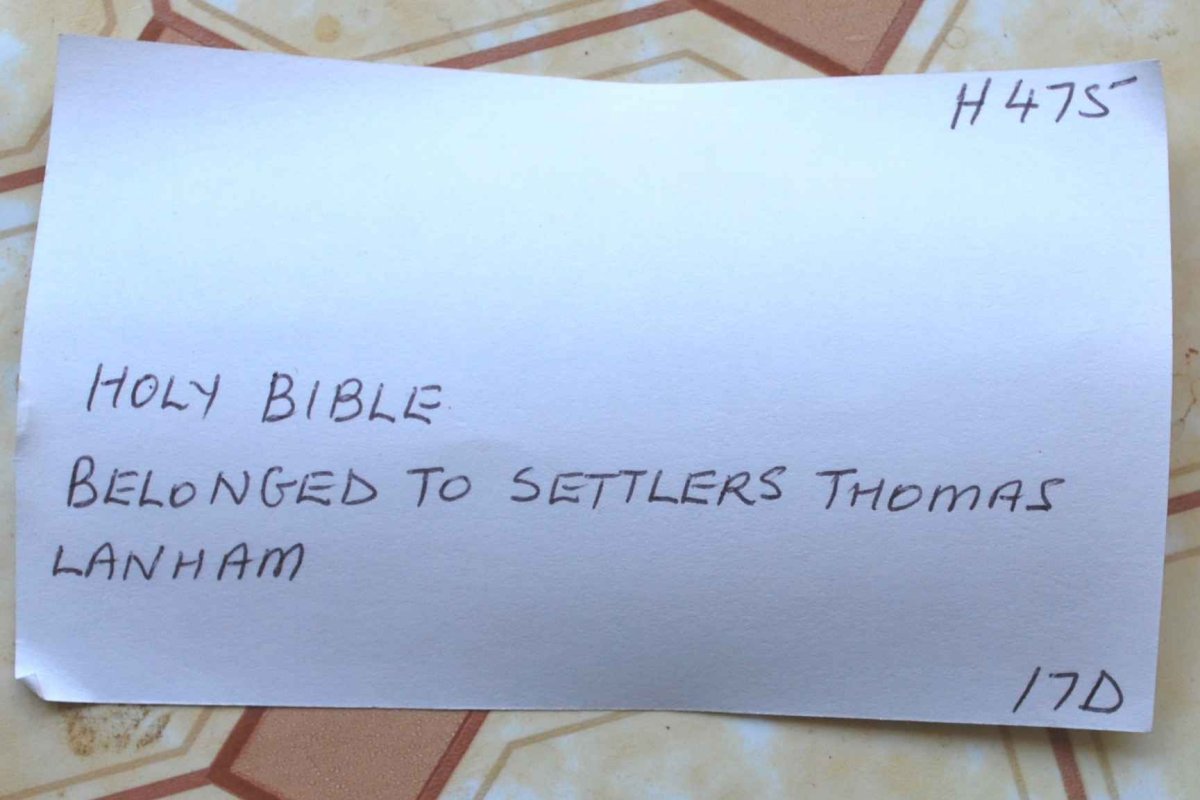 H 475
HOLY BIBLE
BELONGED TO SETTLERS THOMAS
LANHAM
17D